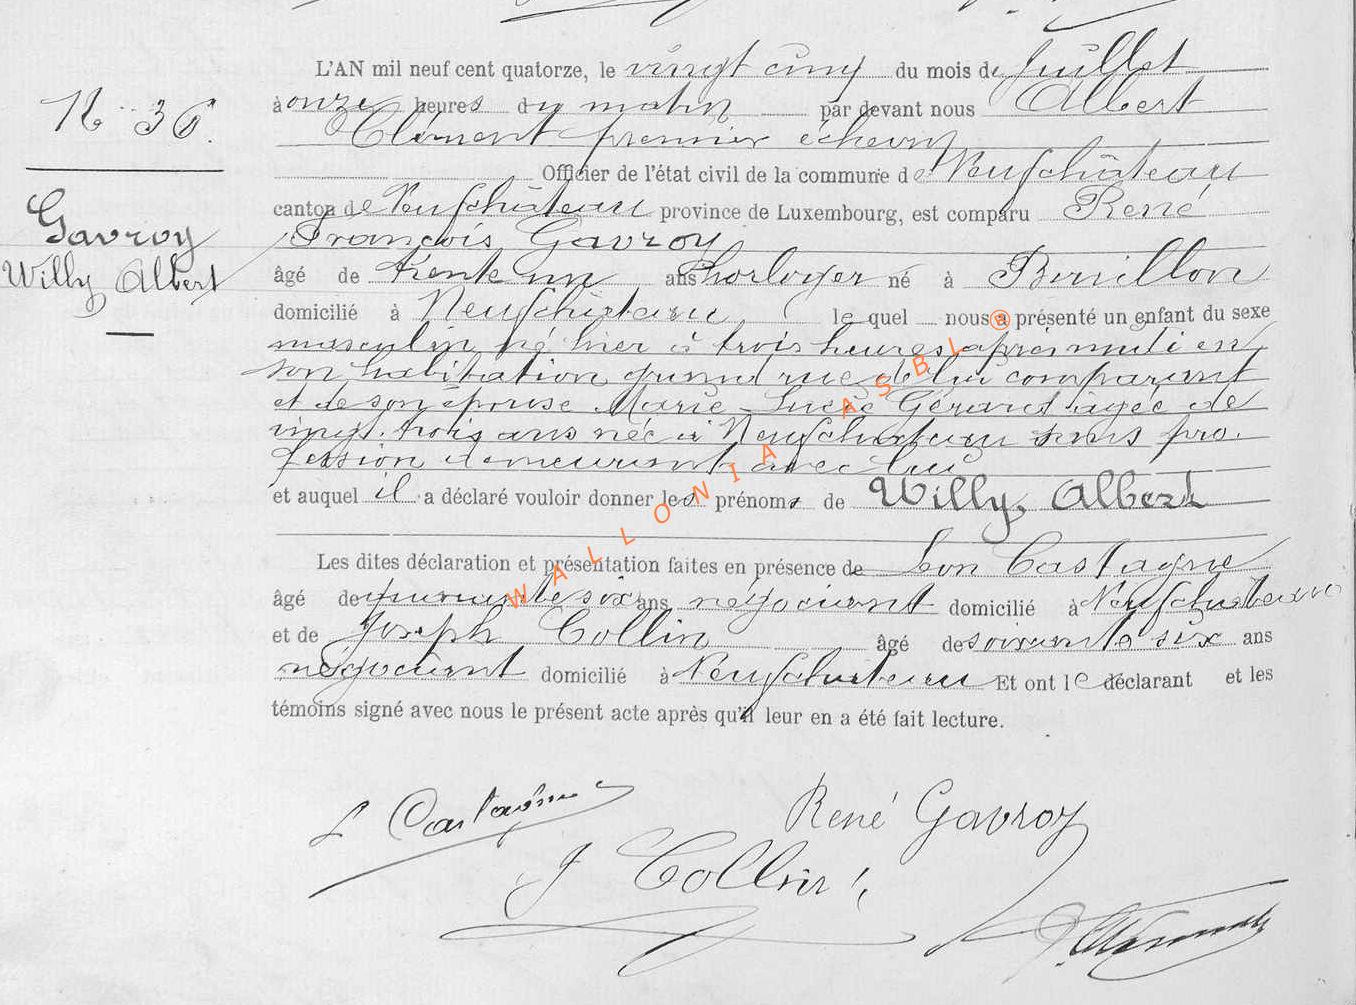 L'AN mil neuf cent quatorze, le vingt cinq du mois de Juillet
à onze heures du matin par devant nous Albert
N° 36.
Clément premier échevin
Officier de l'état civil de la commune de Neufchâteau
canton de Neufchâteau province de Luxembourg, est comparu René
Gavroy
François Gavroy
Willy Albert
âgé de trente un ans horloger né à Bouillon
domicilié à Neufchâteau lequel nous a présenté un enfant du sexe
masculin né hier à trois heures après midi en
son habitation grand rue de lui comparant
et de son épouse Marie Lucie Gérard âgée de
vingt trois ans née à Neufchateau sans pro-
fession demeurant avec lui
et auquel il a déclaré vouloir donner les prénoms de Willy, Albert
WALLONIA ASBL ®
Les dites déclaration et présentation faites en présence de Léon Castagne
âgé de quarante six ans négociant domicilié à Neufchateau
et de Joseph Collin âgé de soixante six ans
négociant domicilié à Neufchateau Et ont le déclarant et les
témoins signé avec nous le présent acte après qu'il leur en a été fait lecture.
L Castagne
René Gavroy
J Collin